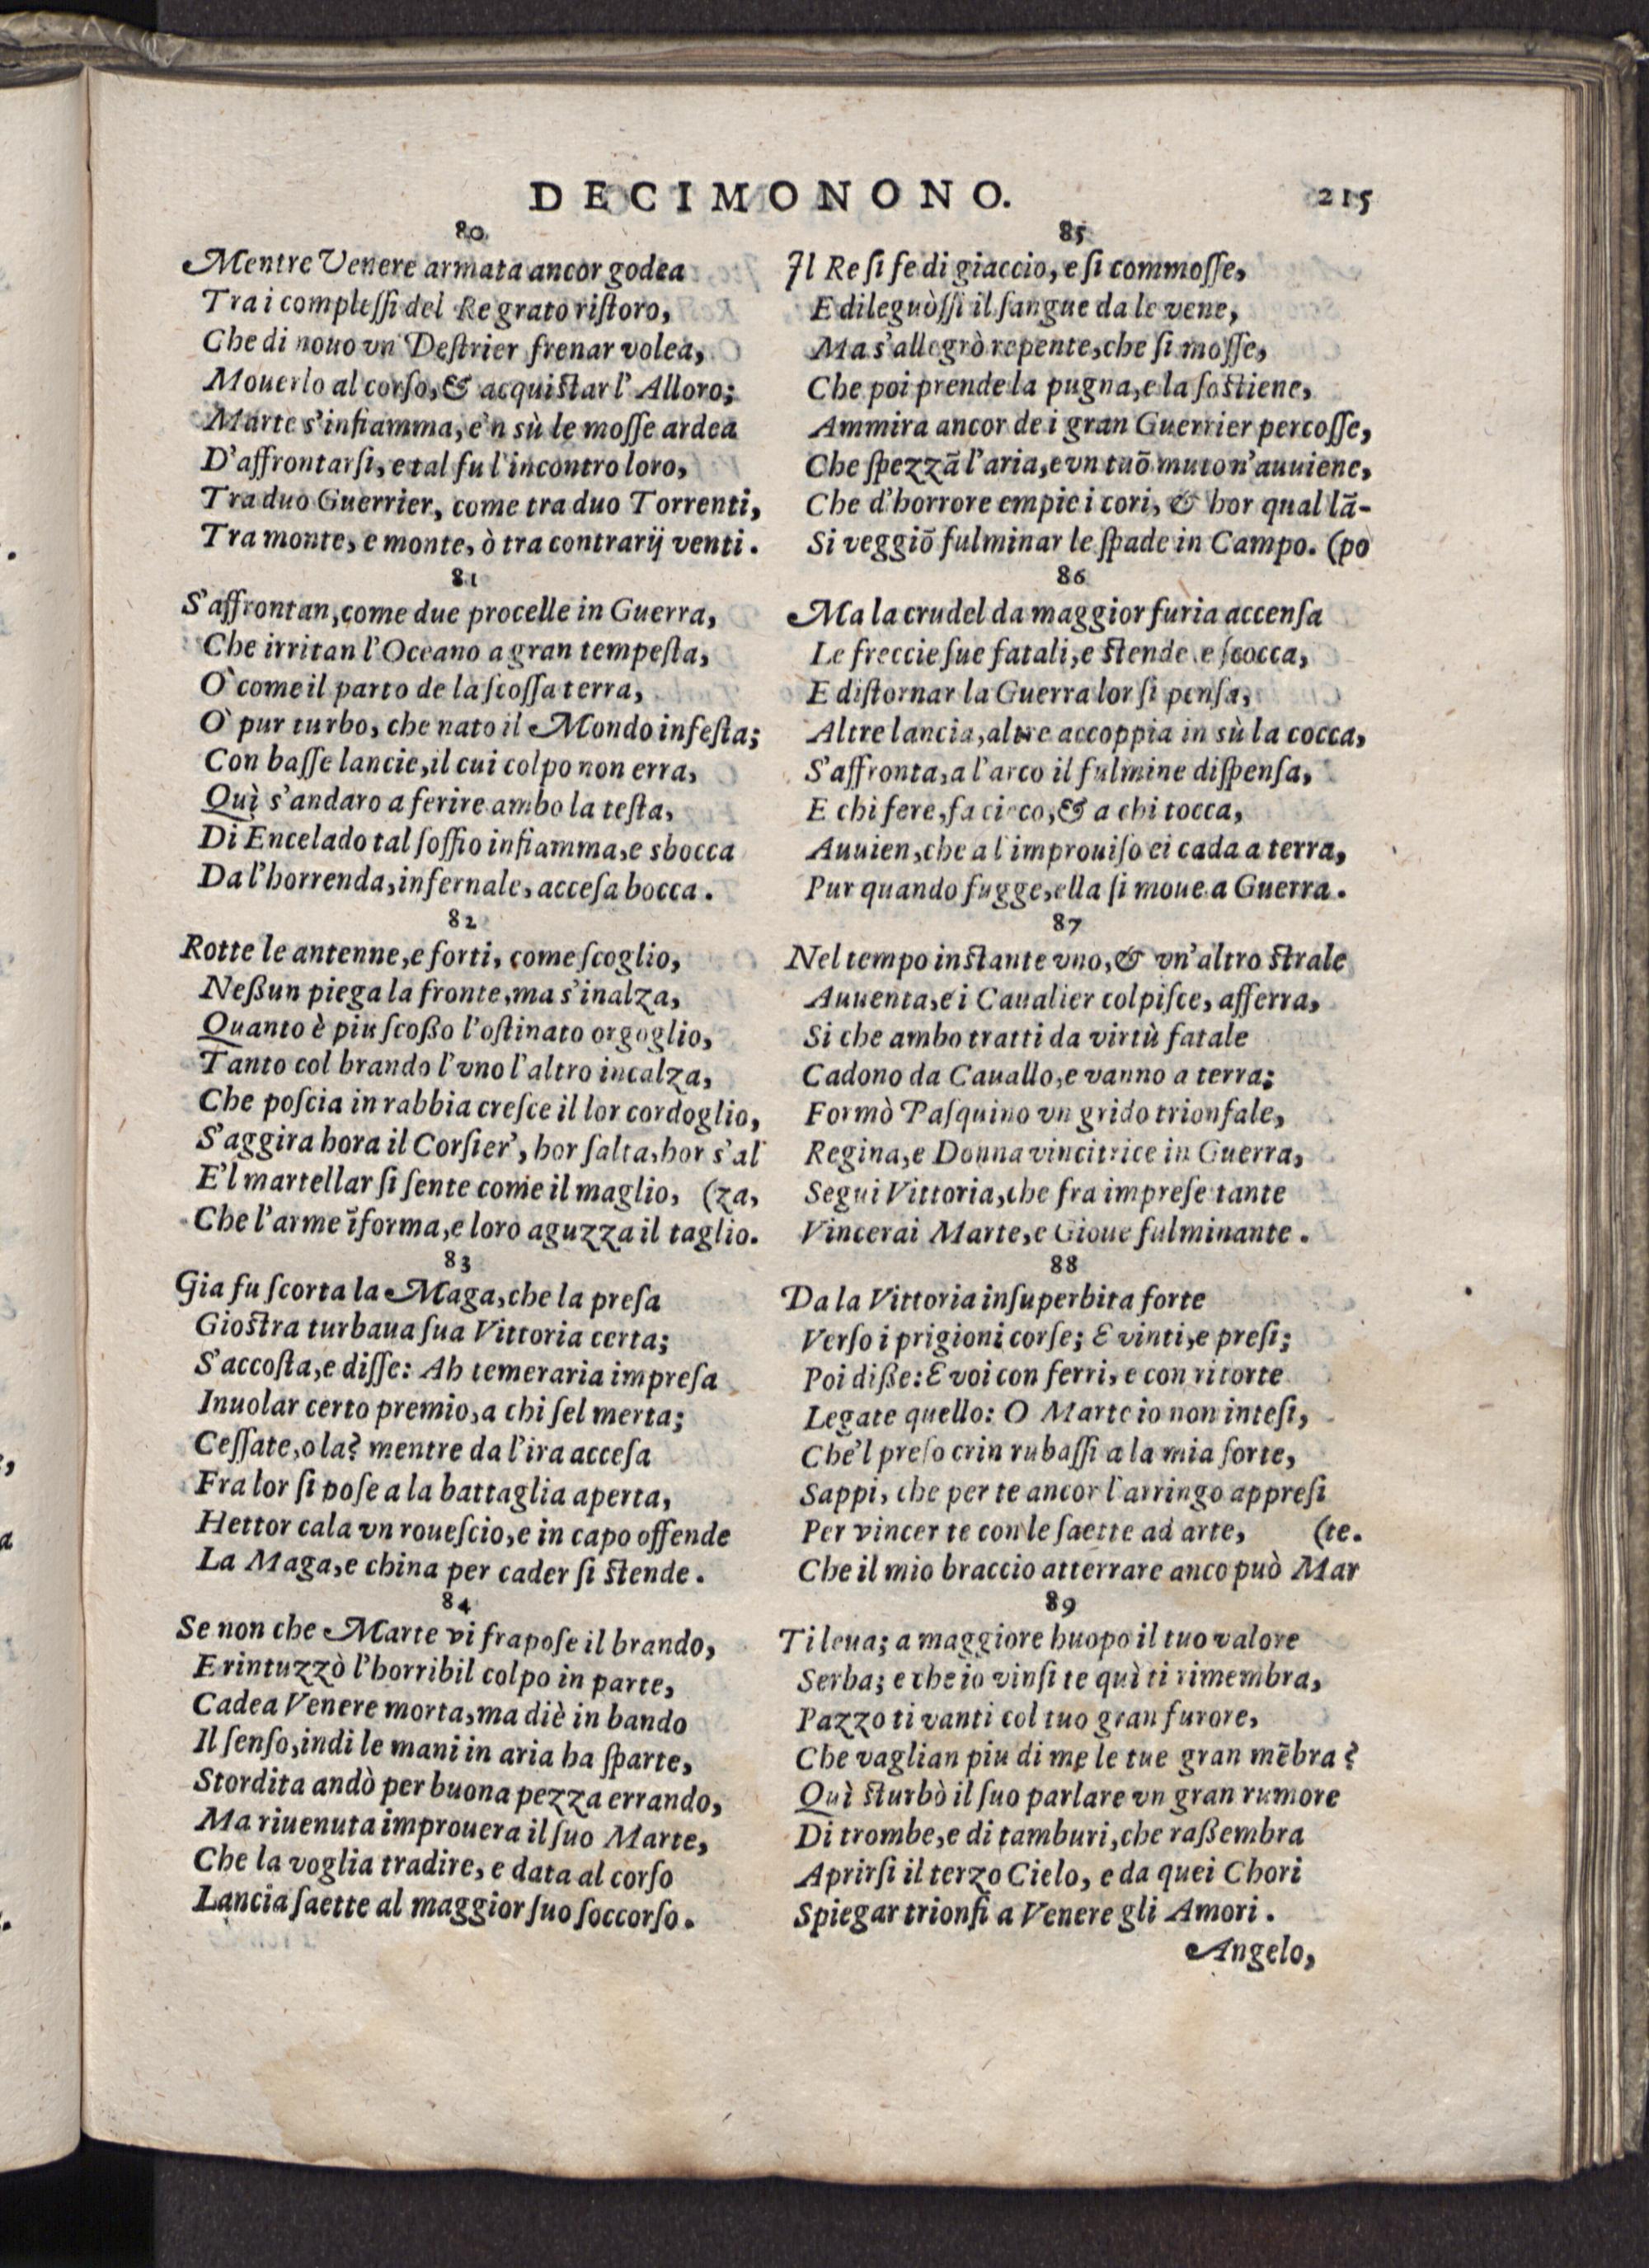 DECIMONONO. 215
80
Mentre Venere armata ancor godea
Tra i complessi del Re grato ristoro,
Che di nouo vn Destrier frenar volea,
Mouerlo al corso, & acquistar l'Alloro;
Marte s'infiamma, e'n sù le mosse ardea
D'affrontarsi, e tal fu l'incontro loro,
Tra duo Guerrier, come tra duo Torrenti,
Tra monte, e monte, ò tra contrarij venti.
81
S'affrontan, come due procelle in Guerra,
Che irritan l'Oceano a gran tempesta,
O' come il parto de la scossa terra,
O' pur turbo, che nato il Mondo infesta;
Con basse lancie, il cui colpo non erra,
Quì s'andaro a ferire ambo la testa,
Di Encelado tal soffio infiamma, e sbocca
Da l'horrenda, infernale, accesa bocca.
82
Rotte le antenne, e forti, come scoglio,
Neßun piega la fronte, ma s'inalza,
Quanto è piu scoßo l'ostinato orgoglio,
Tanto col brando l'vno l'altro incalza,
Che poscia in rabbia cresce il lor cordoglio,
S'aggira hora il Corsier', hor salta, hor s'al
E'l martellar si sente come il maglio, (za,
Che l'arme ĩforma, e loro aguzza il taglio.
83
Gia fu scorta la Maga, che la presa
Giostra turbaua sua Vittoria certa;
S'accosta, e disse: Ah temeraria impresa
Inuolar certo premio, a chi sel merta;
Cessate, ola? mentre da l'ira accesa
Fra lor si pose a la battaglia aperta,
Hettor cala vn rouescio, e in capo offende
La Maga, e china per cader si stende.
84
Se non che Marte vi frapose il brando,
E rintuzzò l'horribil colpo in parte,
Cadea Venere morta, ma diè in bando
Il senso, indi le mani in aria ha sparte,
Stordita andò per buona pezza errando,
Ma riuenuta improuera il suo Marte,
Che la voglia tradire, e data al corso
Lancia saette al maggior suo soccorso.
85
Il Re si fe di giaccio, e si commosse,
E dileguòssi il sangue da le vene,
Ma s'allegrò repente, che si mosse,
Che poi prende la pugna, e la sostiene,
Ammira ancor de i gran Guerrier percosse,
Che spezzã l'aria, e vn tuõ muto n'auuiene,
Che d'horrore empie i cori, & hor qual lã-
Si veggiõ fulminar le spade in Campo. (po
86
Ma la crudel da maggior furia accensa
Le freccie sue fatali, e stende e scocca,
E distornar la Guerra lor si pensa,
Altre lancia, altre accoppia in sù la cocca,
S'affronta, a l'arco il fulmine dispensa,
E chi fere, fa cieco, & a chi tocca,
Auuien, che a l'improuiso ei cada a terra,
Pur quando fugge, ella si moue a Guerra.
87
Nel tempo instante vno, & vn'altro strale
Auuenta, e i Caualier colpisce, afferra,
Si che ambo tratti da virtù fatale
Cadono da Cauallo, e vanno a terra;
Formò Pasquino vn grido trionfale,
Regina, e Donna vincitrice in Guerra,
Segui Vittoria, che fra imprese tante
Vincerai Marte, e Gioue fulminante.
88
Da la Vittoria insuperbita forte
Verso i prigioni corse; E vinti, e presi;
Poi diße: E voi con ferri, e con ritorte
Legate quello: O Marte io non intesi,
Che'l preso crin rubassi a la mia sorte,
Sappi, che per te ancor l'arringo appresi
Per vincer te con le saette ad arte, (te.
Che il mio braccio atterrare anco può Mar
89
Ti leua; a maggiore huopo il tuo valore
Serba; e che io vinsi te quì ti rimembra,
Pazzo ti vanti col tuo gran furore,
Che vaglian piu di me le tue gran mẽbra?
Quì sturbò il suo parlare vn gran rumore
Di trombe, e di tamburi, che raßembra
Aprirsi il terzo Cielo, e da quei Chori
Spiegar trionfi a Venere gli Amori.
Angelo,